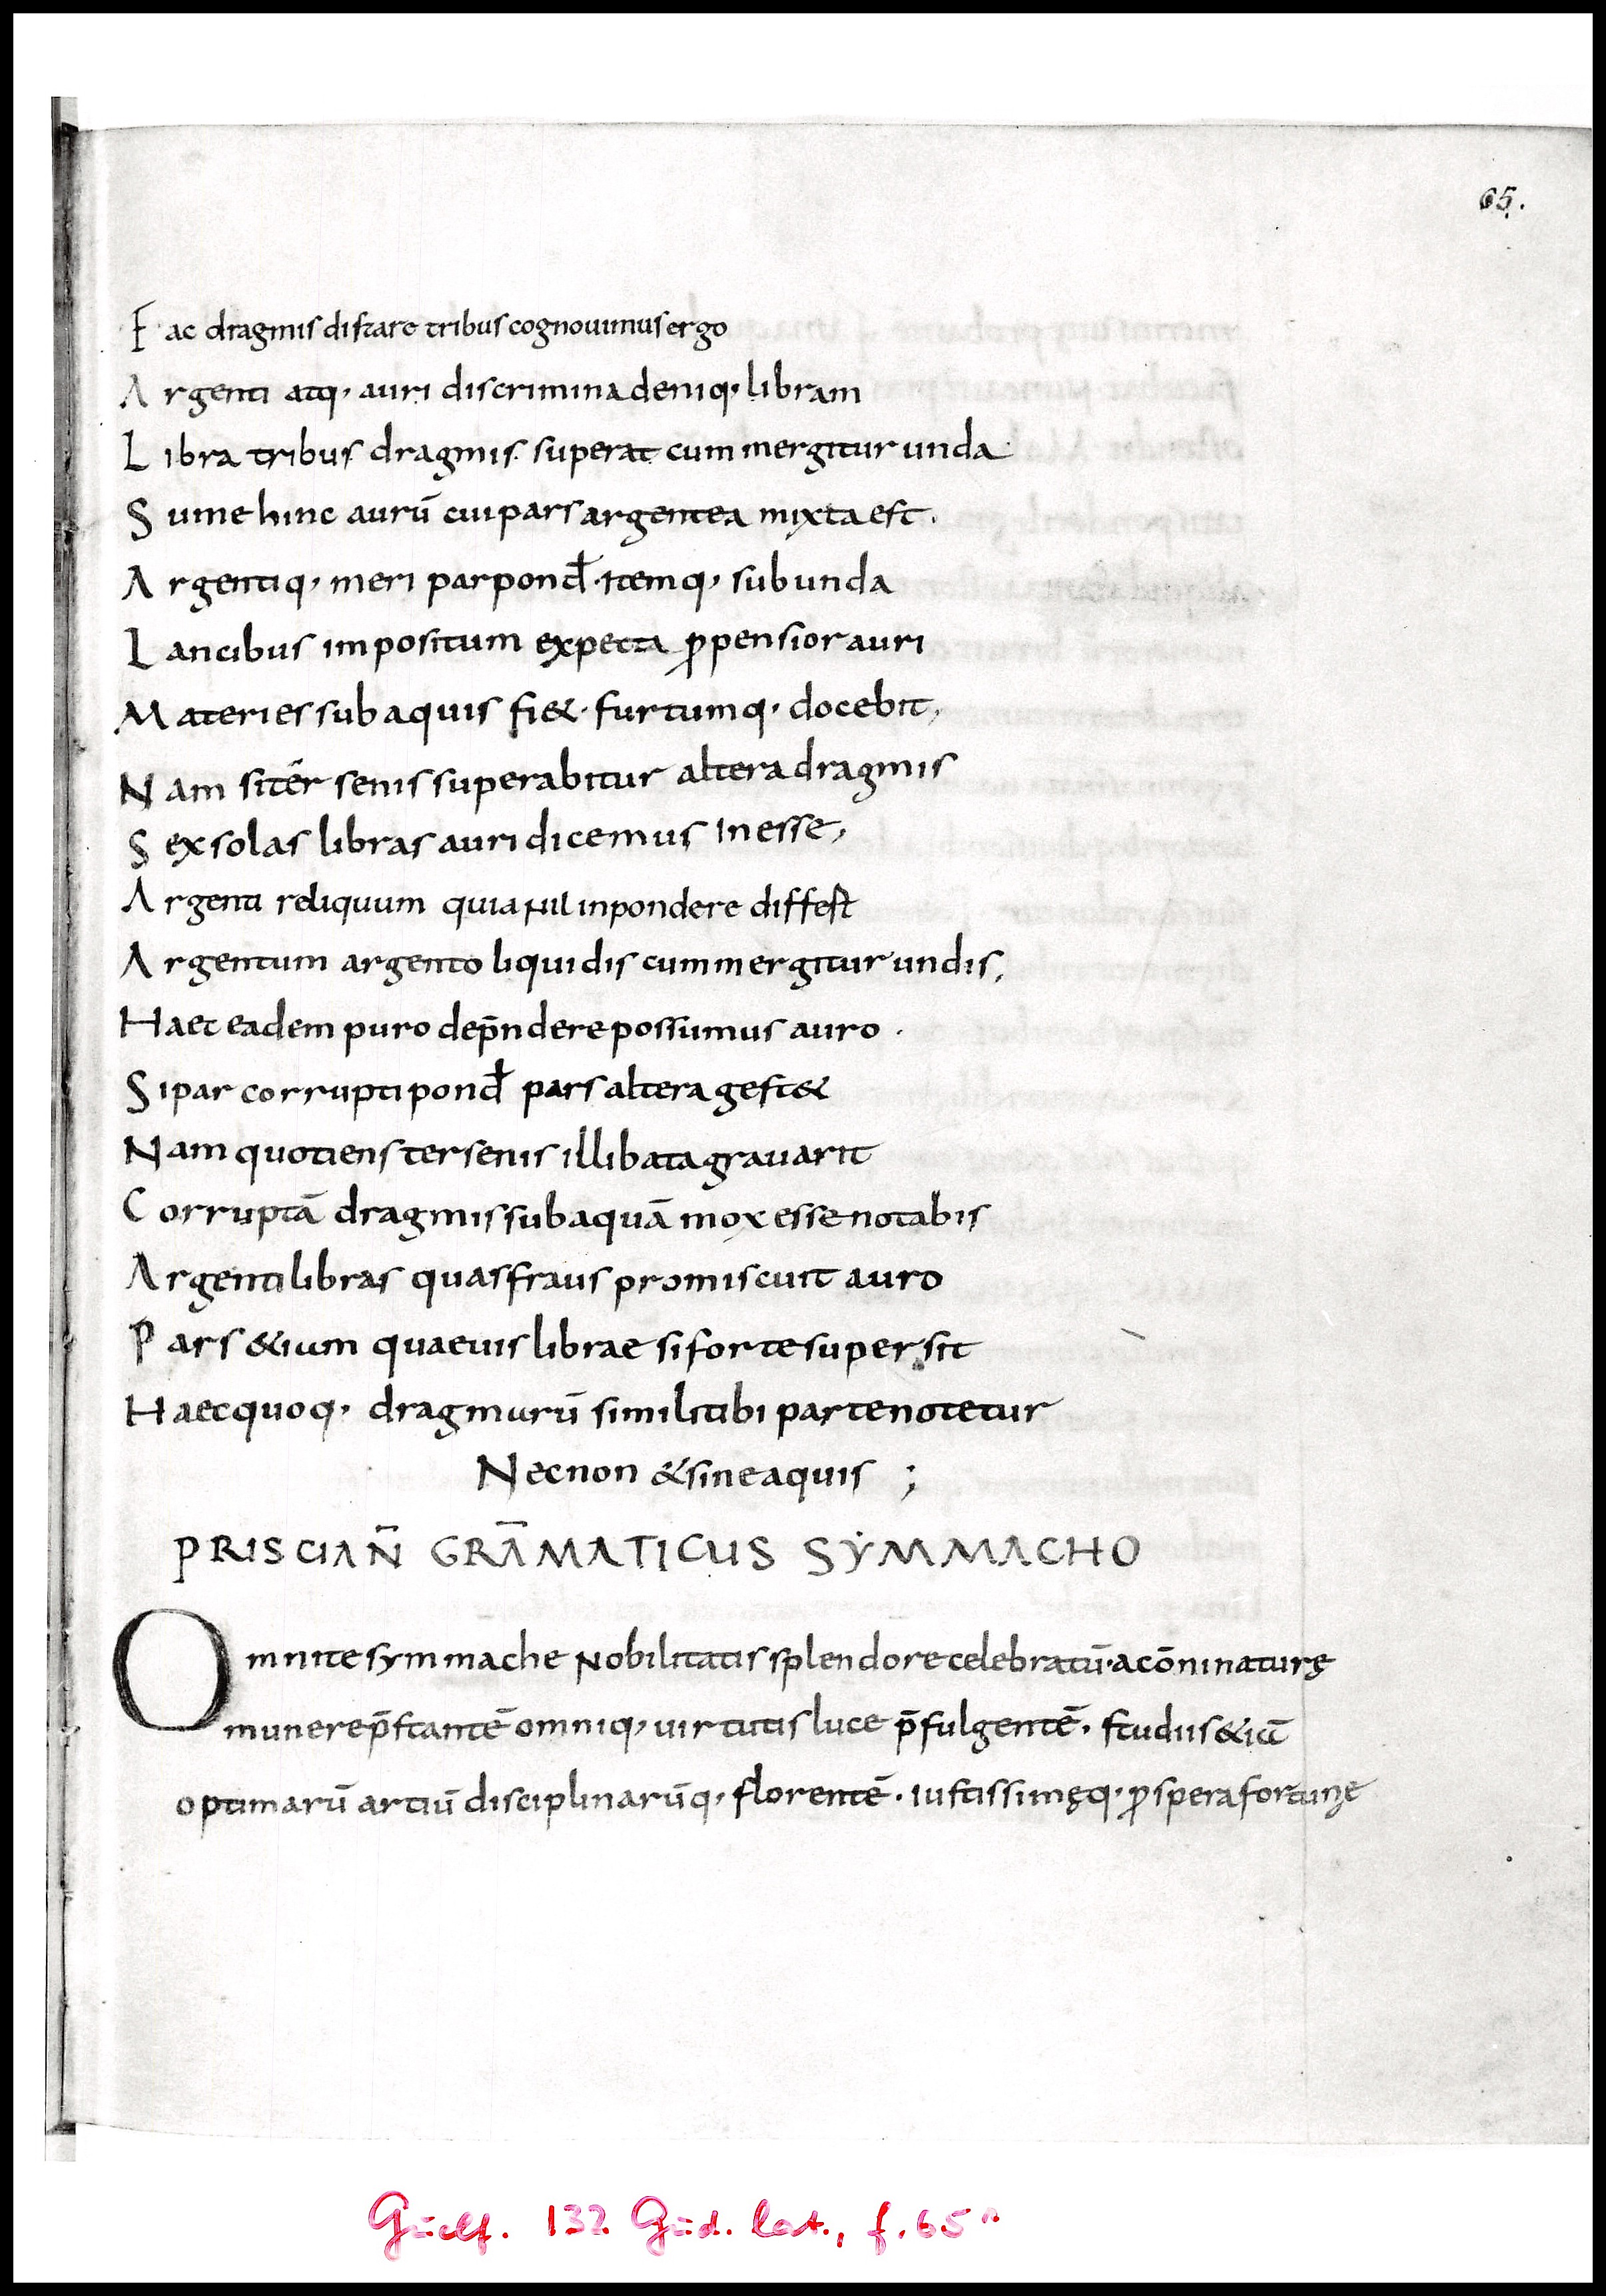 65.
Fac dragmis distare tribus cognouimus ergo
Argenti atq· auri discrimina deniq· libram
Libra tribus dragmis superat cum mergitur unda
Sume hinc aurū cui pars argentea mixta est.
Argentiq· meri par pond̄· itemq· sub unda
Lancibus impositum expecta ꝓpensior auri
Materies sub aquis fi&· furtumq· docebit,
Nam si tēr senis superabitur altera dragmis
Sex solas libras auri dicemus inesse,
Argenti reliquum quia nil in pondere diffest
Argentum argento liquidis cum mergitur undis,
Haet eadem puro dep̄ndere possumus auro.
Si par corrupti pond̄ pars altera gest&
Nam quotiens ter senis illibata grauarit
Corruptā dragmis sub aquā mox esse notabis
Argenti libras quas fraus promiscuit auro
Pars &ium quaeuis librae si forte supersit
Haec quoq· dragmurū simili tibi parte notetur
Nec non & sine aquis ;
PRISCIAN̄ GRĀMATICUS SẎMMACHO
Omni te symmache nobilitatis splendore celebratū· a cōni naturę
munere p̄stantē omniq· uirtutis luce p̄fulgentē· studiis &iā
optimarū artiū disciplinarūq· florentē· iustissimęq· ꝓspera fortunę
Guelf. 132 Gud. lat., f. 65r